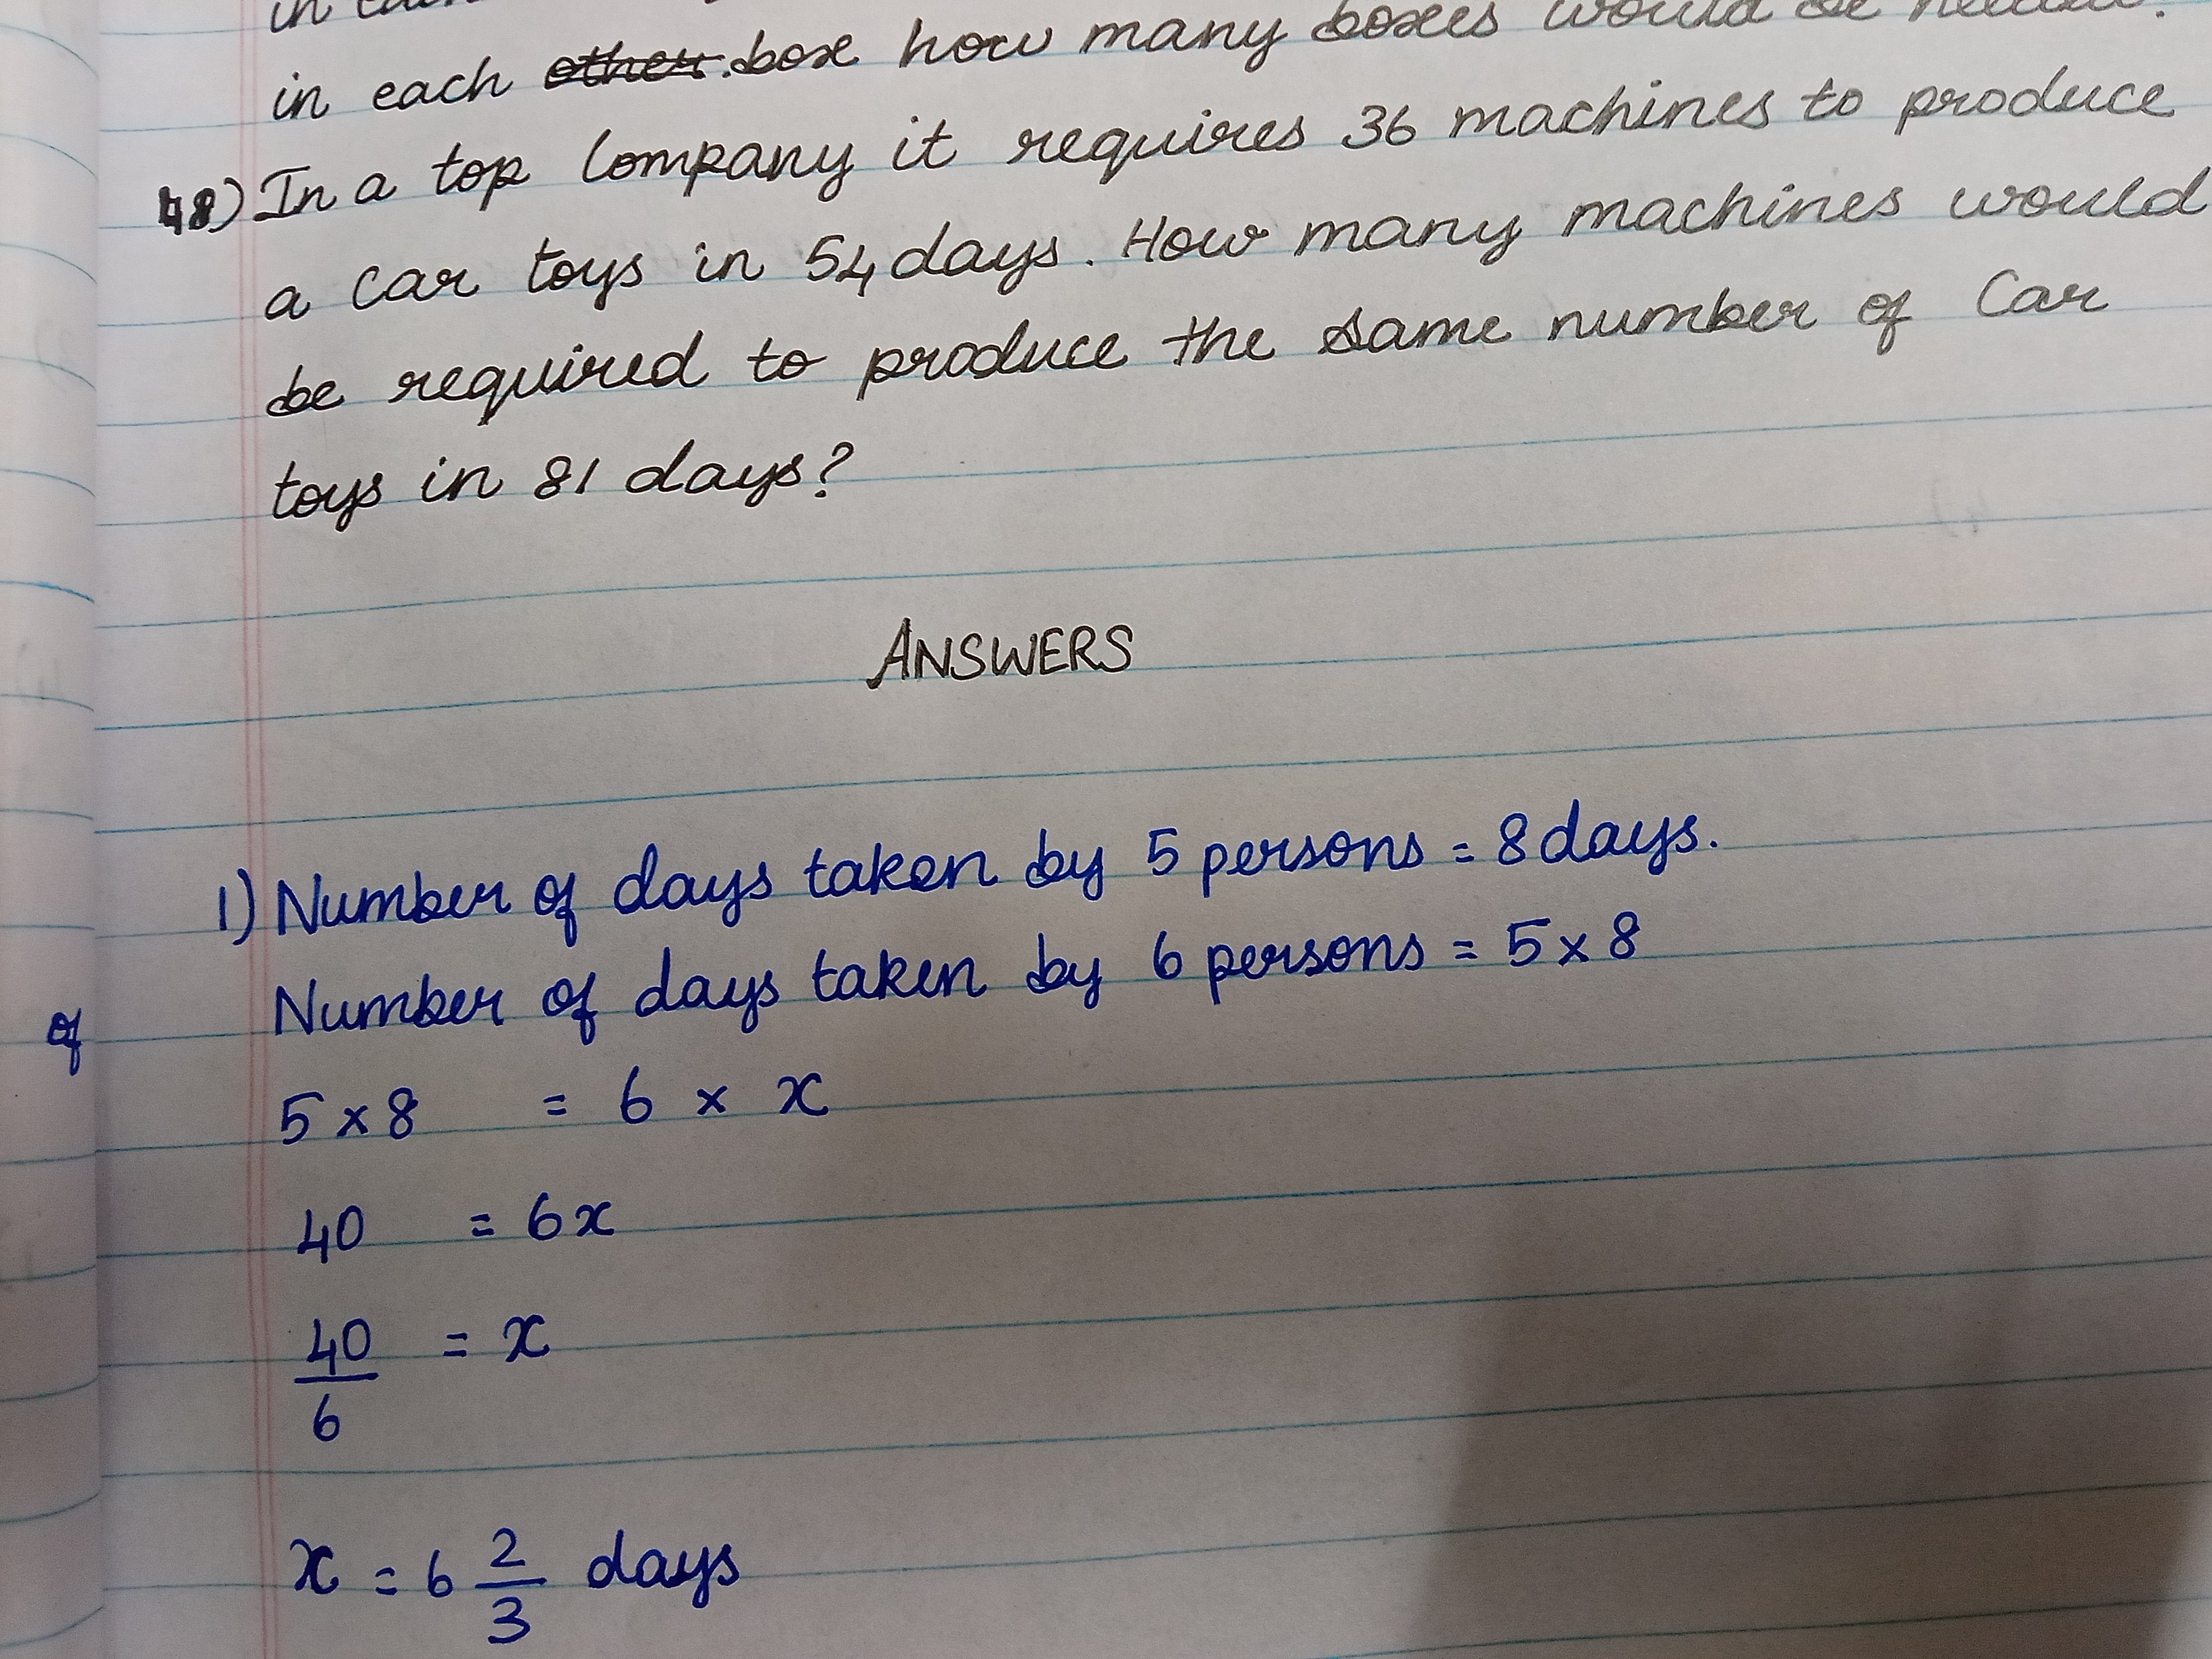 in each
in each other. box how many boxes would be needed?
48) In a top Company it requires 36 machines to produce
a car toys in 54 days. How many machines would
be required to produce the same number of Car
toys in 81 days?
ANSWERS
1) Number of days taken by 5 persons = 8 days.
Number of days taken by 6 persons = 5 x 8
of
5 x 8 = 6 x x
40 = 6x
40/6 = x
x = 6 2/3 days